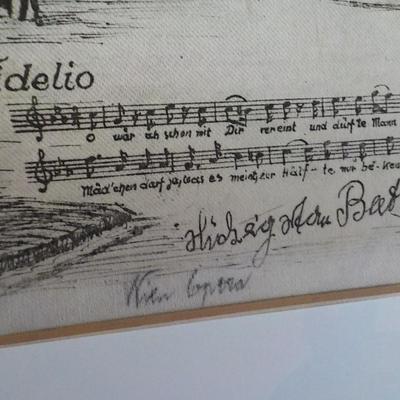 Fidelio
O wär ich schon mit Dir vereint und dürfte Mann
Mäd'chen darf ja, was es meint, zur Hälf-te nur be-ken
Wien Opera